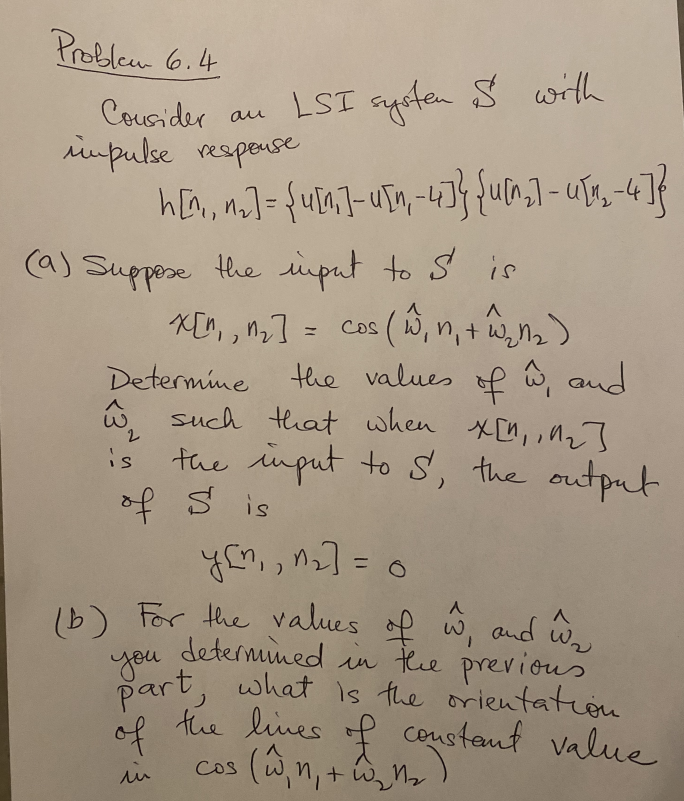 Problem 6.4
Consider an LSI system S with
impulse response
h[n₁, n₂] = {u[n₁]-u[n₁-4]}{u[n₂]-u[n₂-4]}
(a) Suppose the input to S is
x[n₁, n₂] = cos(ω̂₁n₁ + ω̂₂n₂)
Determine the values of ω̂₁ and
ω̂₂ such that when x[n₁, n₂]
is the input to S, the output
of S is
y[n₁, n₂] = 0
(b) For the values of ω̂₁ and ω̂₂
you determined in the previous
part, what is the orientation
of the lines of constant value
in cos(ω̂₁n₁ + ω̂₂n₂)